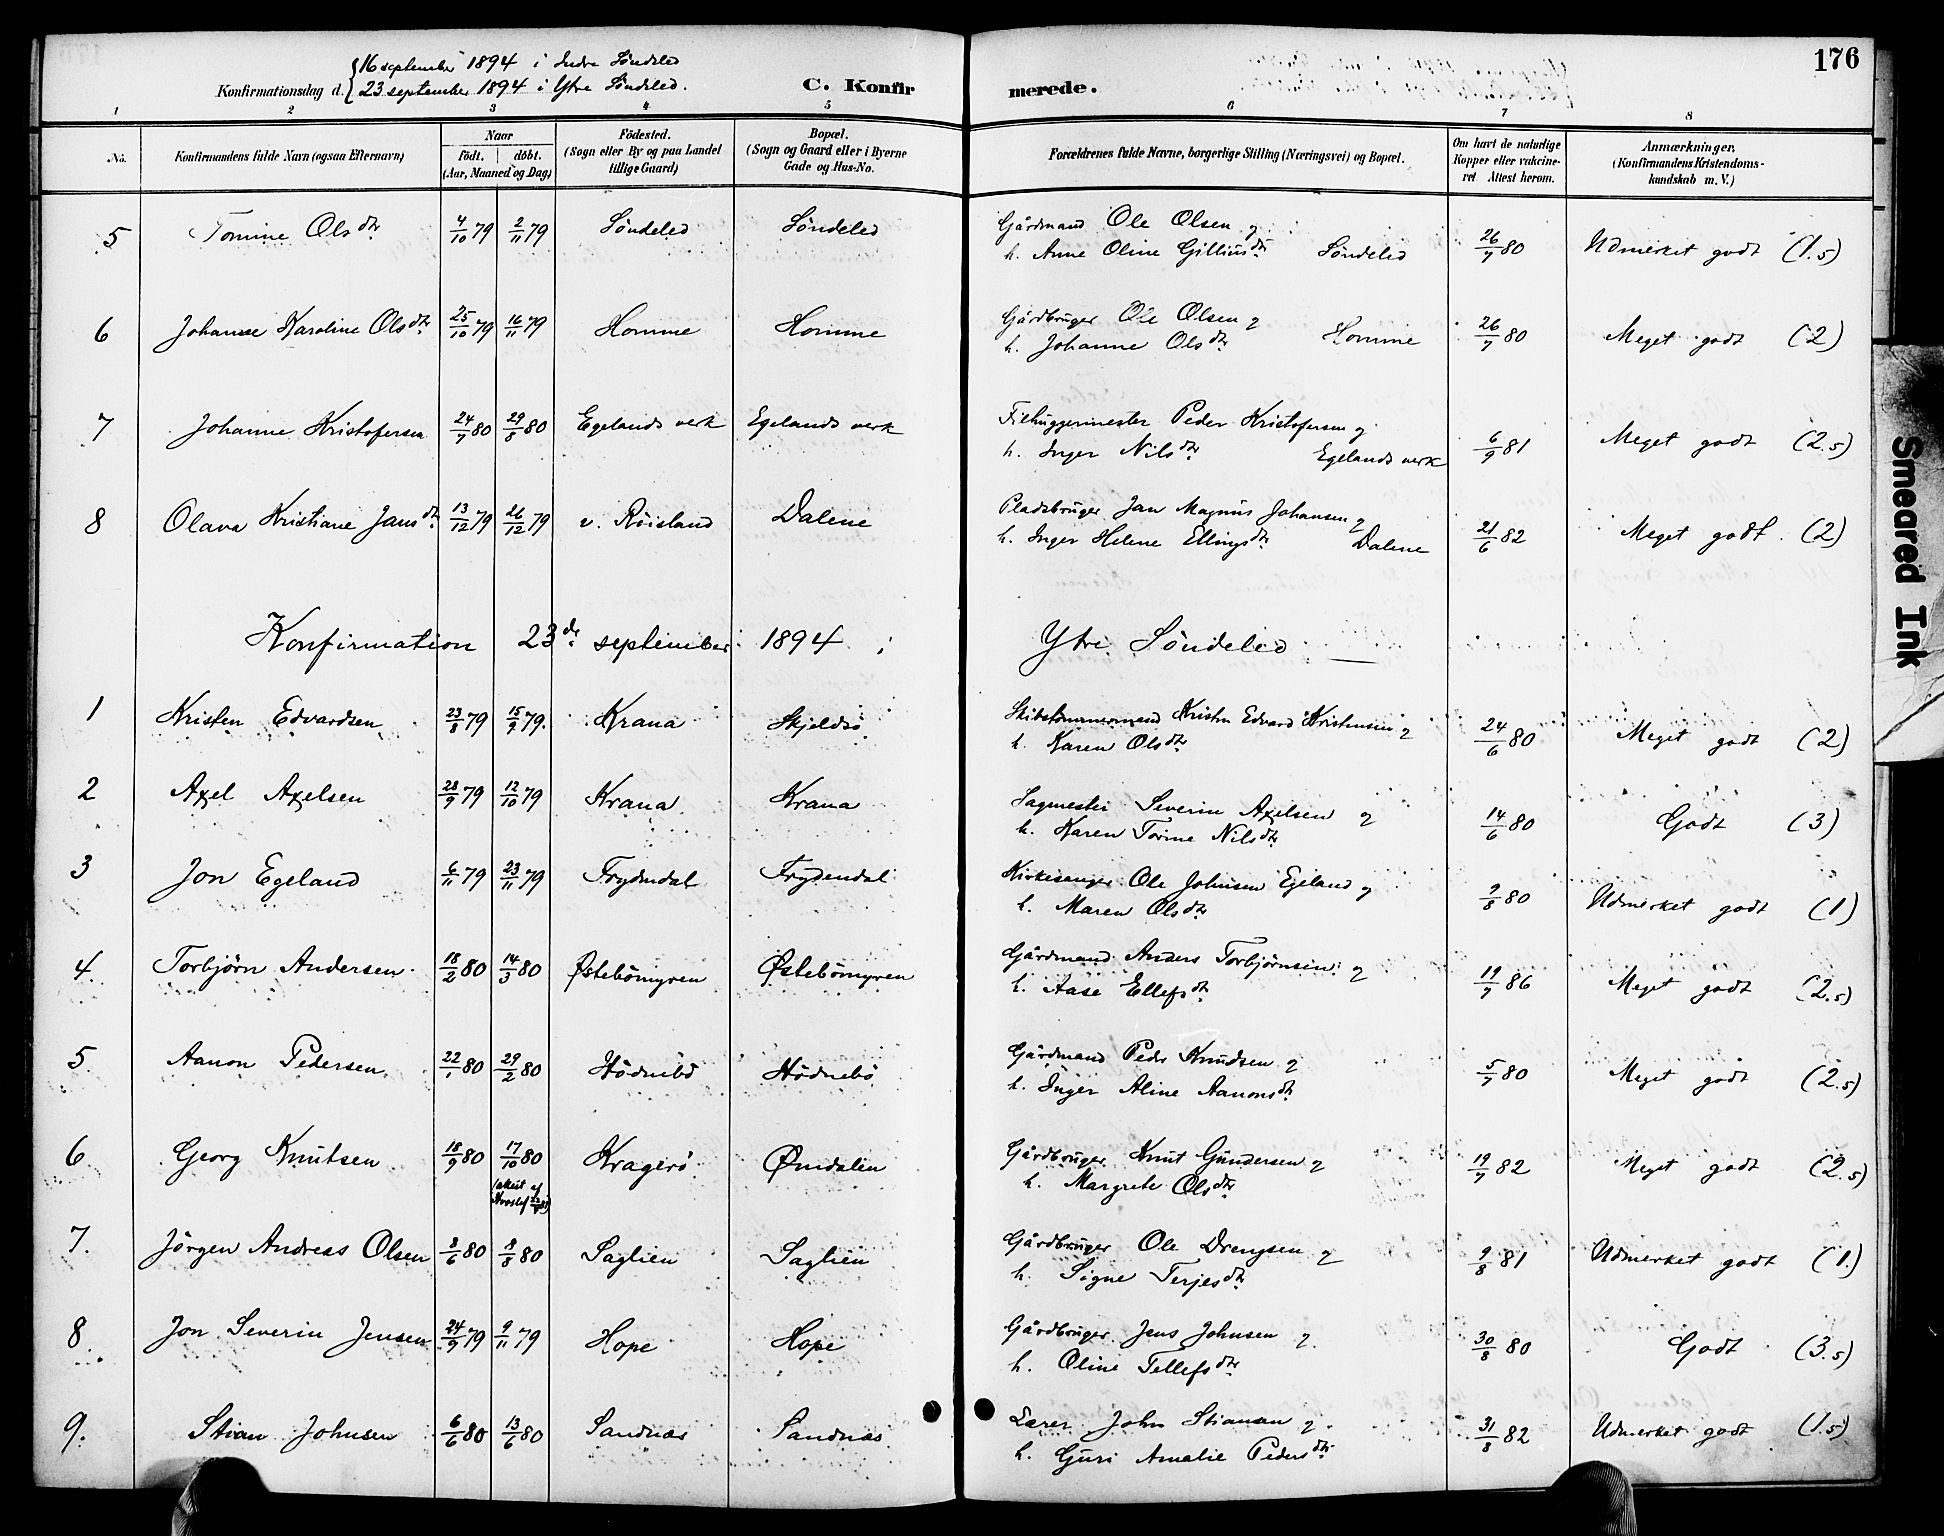 176
Konfirmationsdag d. 16 september 1894 i Indre Söndeled
23 september 1894 i Ytre Söndeled.
C. Konfirmerede.
1 2 3 4 5 6 7 8
No. Konfirmandens fulde Navn (ogsaa Efternavn) Naar födt. döbt. (Aar, Maaned og Dag) Födested. (Sogn eller By og paa Landet tillige Gaard) Bopæl. (Sogn og Gaard eller i Byerne Gade og Hus-No. Forældrenes fulde Navne, borgerlige Stilling (Næringsvei) og Bopæl. Om havt de naturlige Kopper eller vaccineret Attest herom. Anmærkninger. (Konfirmandens Kristendomskundskab m. V.)
5 Tomine Olsdtr 4/10 79 2/11 79 Söndeled Söndeled Gårdmand Ole Olsen og
h. Anne Oline Gilliusdtr Söndeled 26/7 80 Udmerket godt (1.5)
6 Johanne Karoline Olsdtr 25/10 79 16/11 79 Homme Homme Gårdbruger Ole Olsen og
h. Johanne Olsdtr Homme 26/7 80 Meget godt (2)
7 Johanne Kristofersen 24/7 80 29/8 80 Egelands verk Egelands verk Filhuggermester Peder Kristofersen og
h. Inger Nilsdtr Egelands verk 6/9 81 Meget godt (2.5)
8 Olava Kristiane Jansdtr 13/12 79 26/12 79 v. Röisland Dalene Pladsbruger Jan Magnus Johansen og
h. Inger Helene Ellingsdtr Dalene 21/6 82 Meget godt. (2)
Konfirmation 23de september 1894 i Ytre Söndeled
1 Kristen Edvardsen 23/8 79 15/9 79. Krana Skjeldsö Skibstömmermand Kristen Edvard Kristensen og
h. Karen Olsdtr 24/6 80 Meget godt (2)
2 Axel Axelsen 28/9 79 12/10 79 Krana Krana Sagmester Severin Axelsen og
h. Karen Torine Nilsdtr 14/6 80 Godt (3)
3 Jon Egeland 6/11 79 23/11 79 Frydendal Frydendal Kirkesanger Ole Johnsen Egeland og
h. Maren Olsdtr 9/8 80 Udmerket godt (1)
4. Torbjörn Andersen. 18/2 80 14/3 80 Østebömyren Østebömyren Gårdmand Anders Torbjörnsen og
h. Aase Ellefsdtr 19/7 86 Meget godt (2.5)
5. Aanon Pedersen. 22/1 80 29/2 80 Hödnebö Hödnebö Gårdmand Peder Knudsen og
h. Inger Aline Aanonsdtr 5/7 80 Meget godt (2.5)
6 Georg Knutsen 18/9 80 17/10 80 Kragerö Ømdalen Gårdbruger Knut Gundersen og
h. Margrete Olsdtr 19/7 82 Meget godt (2.5)
7. Jörgen Andreas Olsen 3/6 80 8/8 80 Saglien Saglien Gårdbruger Ole Drengsen og
h. Signe Terjesdtr 9/8 81 Udmerket godt (1.)
8. Jon Severin Jensen 24/9 79 9/11 79 Hope Hope Gårdbruger Jens Johnsen og
h. Oline Tellefsdtr 30/8 80 Godt (3.5)
9. Stian Johnsen 6/6 80 13/6 80 Sandnæs Sandnæs Lærer John Stiansen og
h. Guri Amalie Pedersdtr 31/8 82 Udmerket godt (1.5)
Smeared Ink